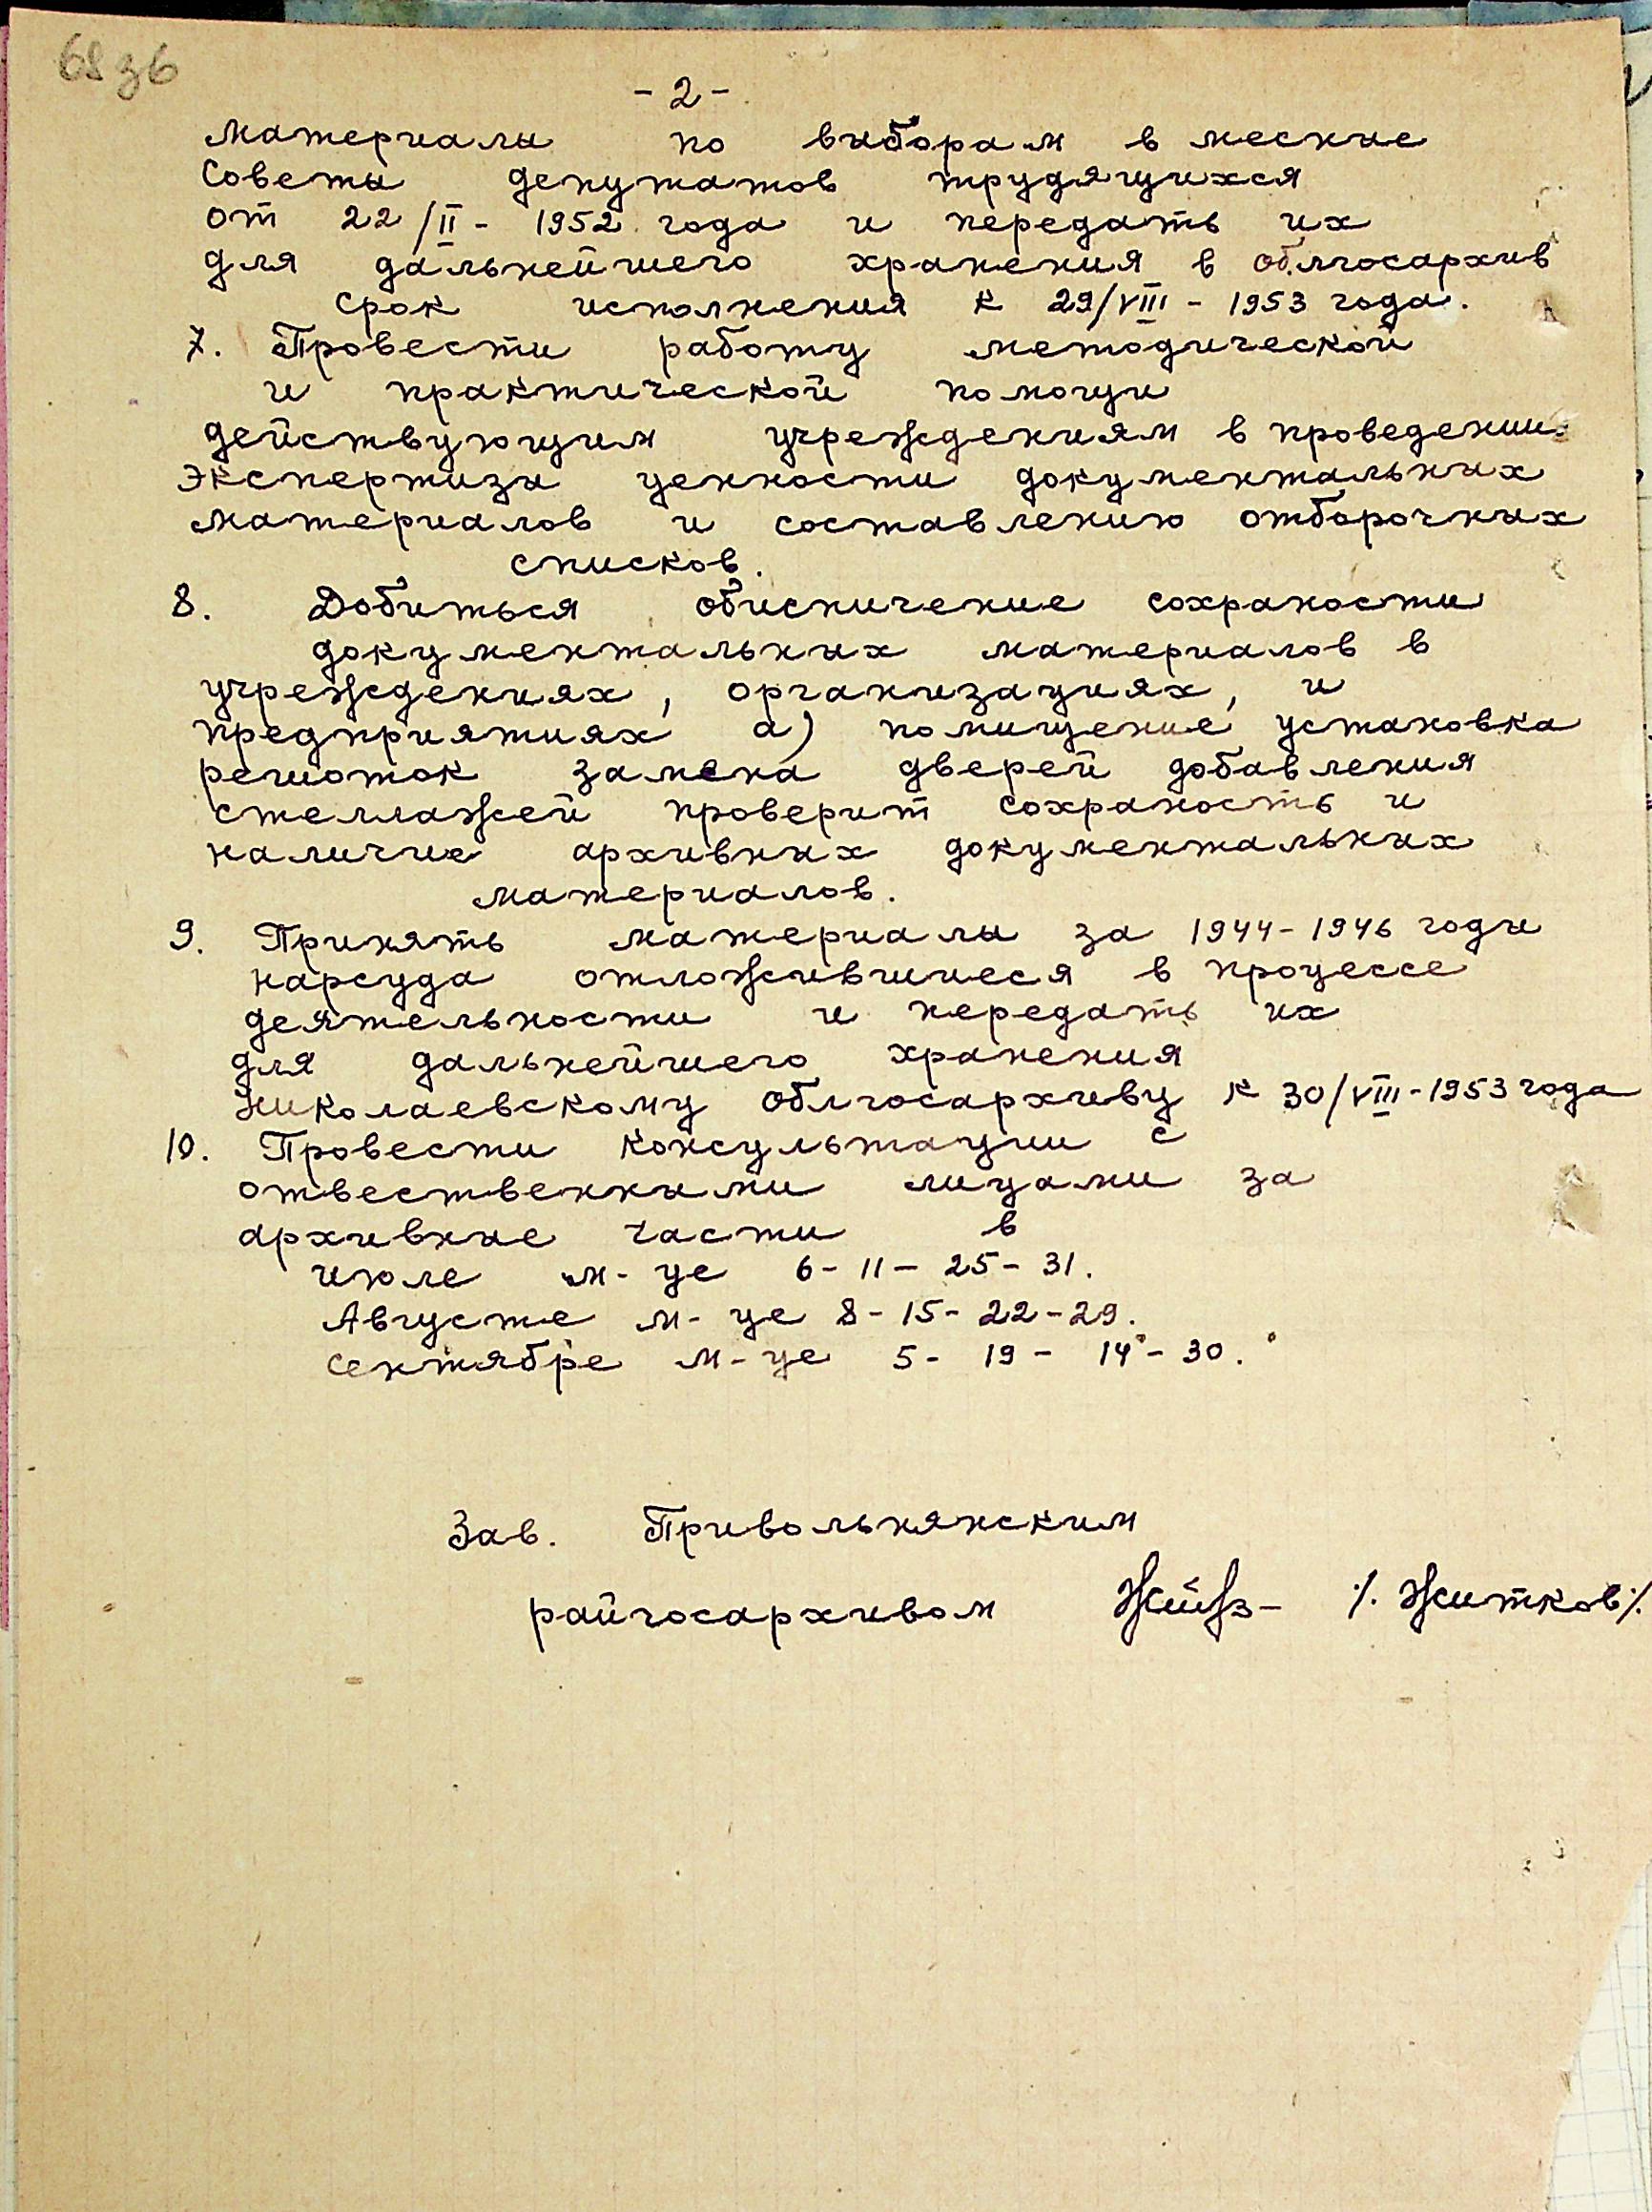 68 зв
- 2 -
материалы по выборам в меские
Советы депутатов трудящихся
от 22/II - 1952 года и передать их
для дальнейшего хранения в облгосархив
срок исполнения к 29/VIII - 1953 года.
7. Провести работу методической
и практической помощи
действующим учреждениям в проведении
экспертизы ценности документальных
материалов и составлению отборочных
списков.
8. Добиться обиспичение сохраности
документальных материалов в
учреждениях, организациях, и
предприятиях а) помищение установка
решоток замена дверей добавления
стеллажей проверит сохраность и
наличие архивных документальных
материалов.
9. Принять материалы за 1944-1946 годы
нарсуда отложившиеся в процессе
деятельности и передать их
для дальнейшего хранения
Николаевскому облгосархиву к 30/VIII-1953 года
10. Провести консультации с
отвественными лицами за
архивные части в
июле м-це 6 - 11 - 25 - 31.
Августе м-це 8 - 15 - 22 - 29.
сентябре м-це 5 - 19 - 14 - 30.
Зав. Привольнянским
райгосархивом /. Житков/.